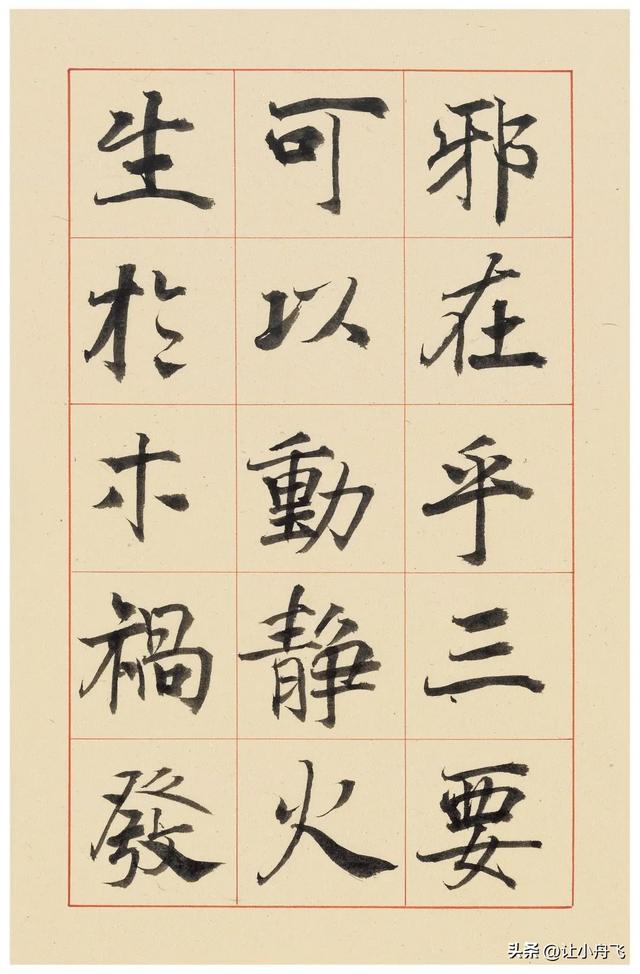 邪在乎三要
可以動靜火
生於木禍發
头条 @让小舟飞